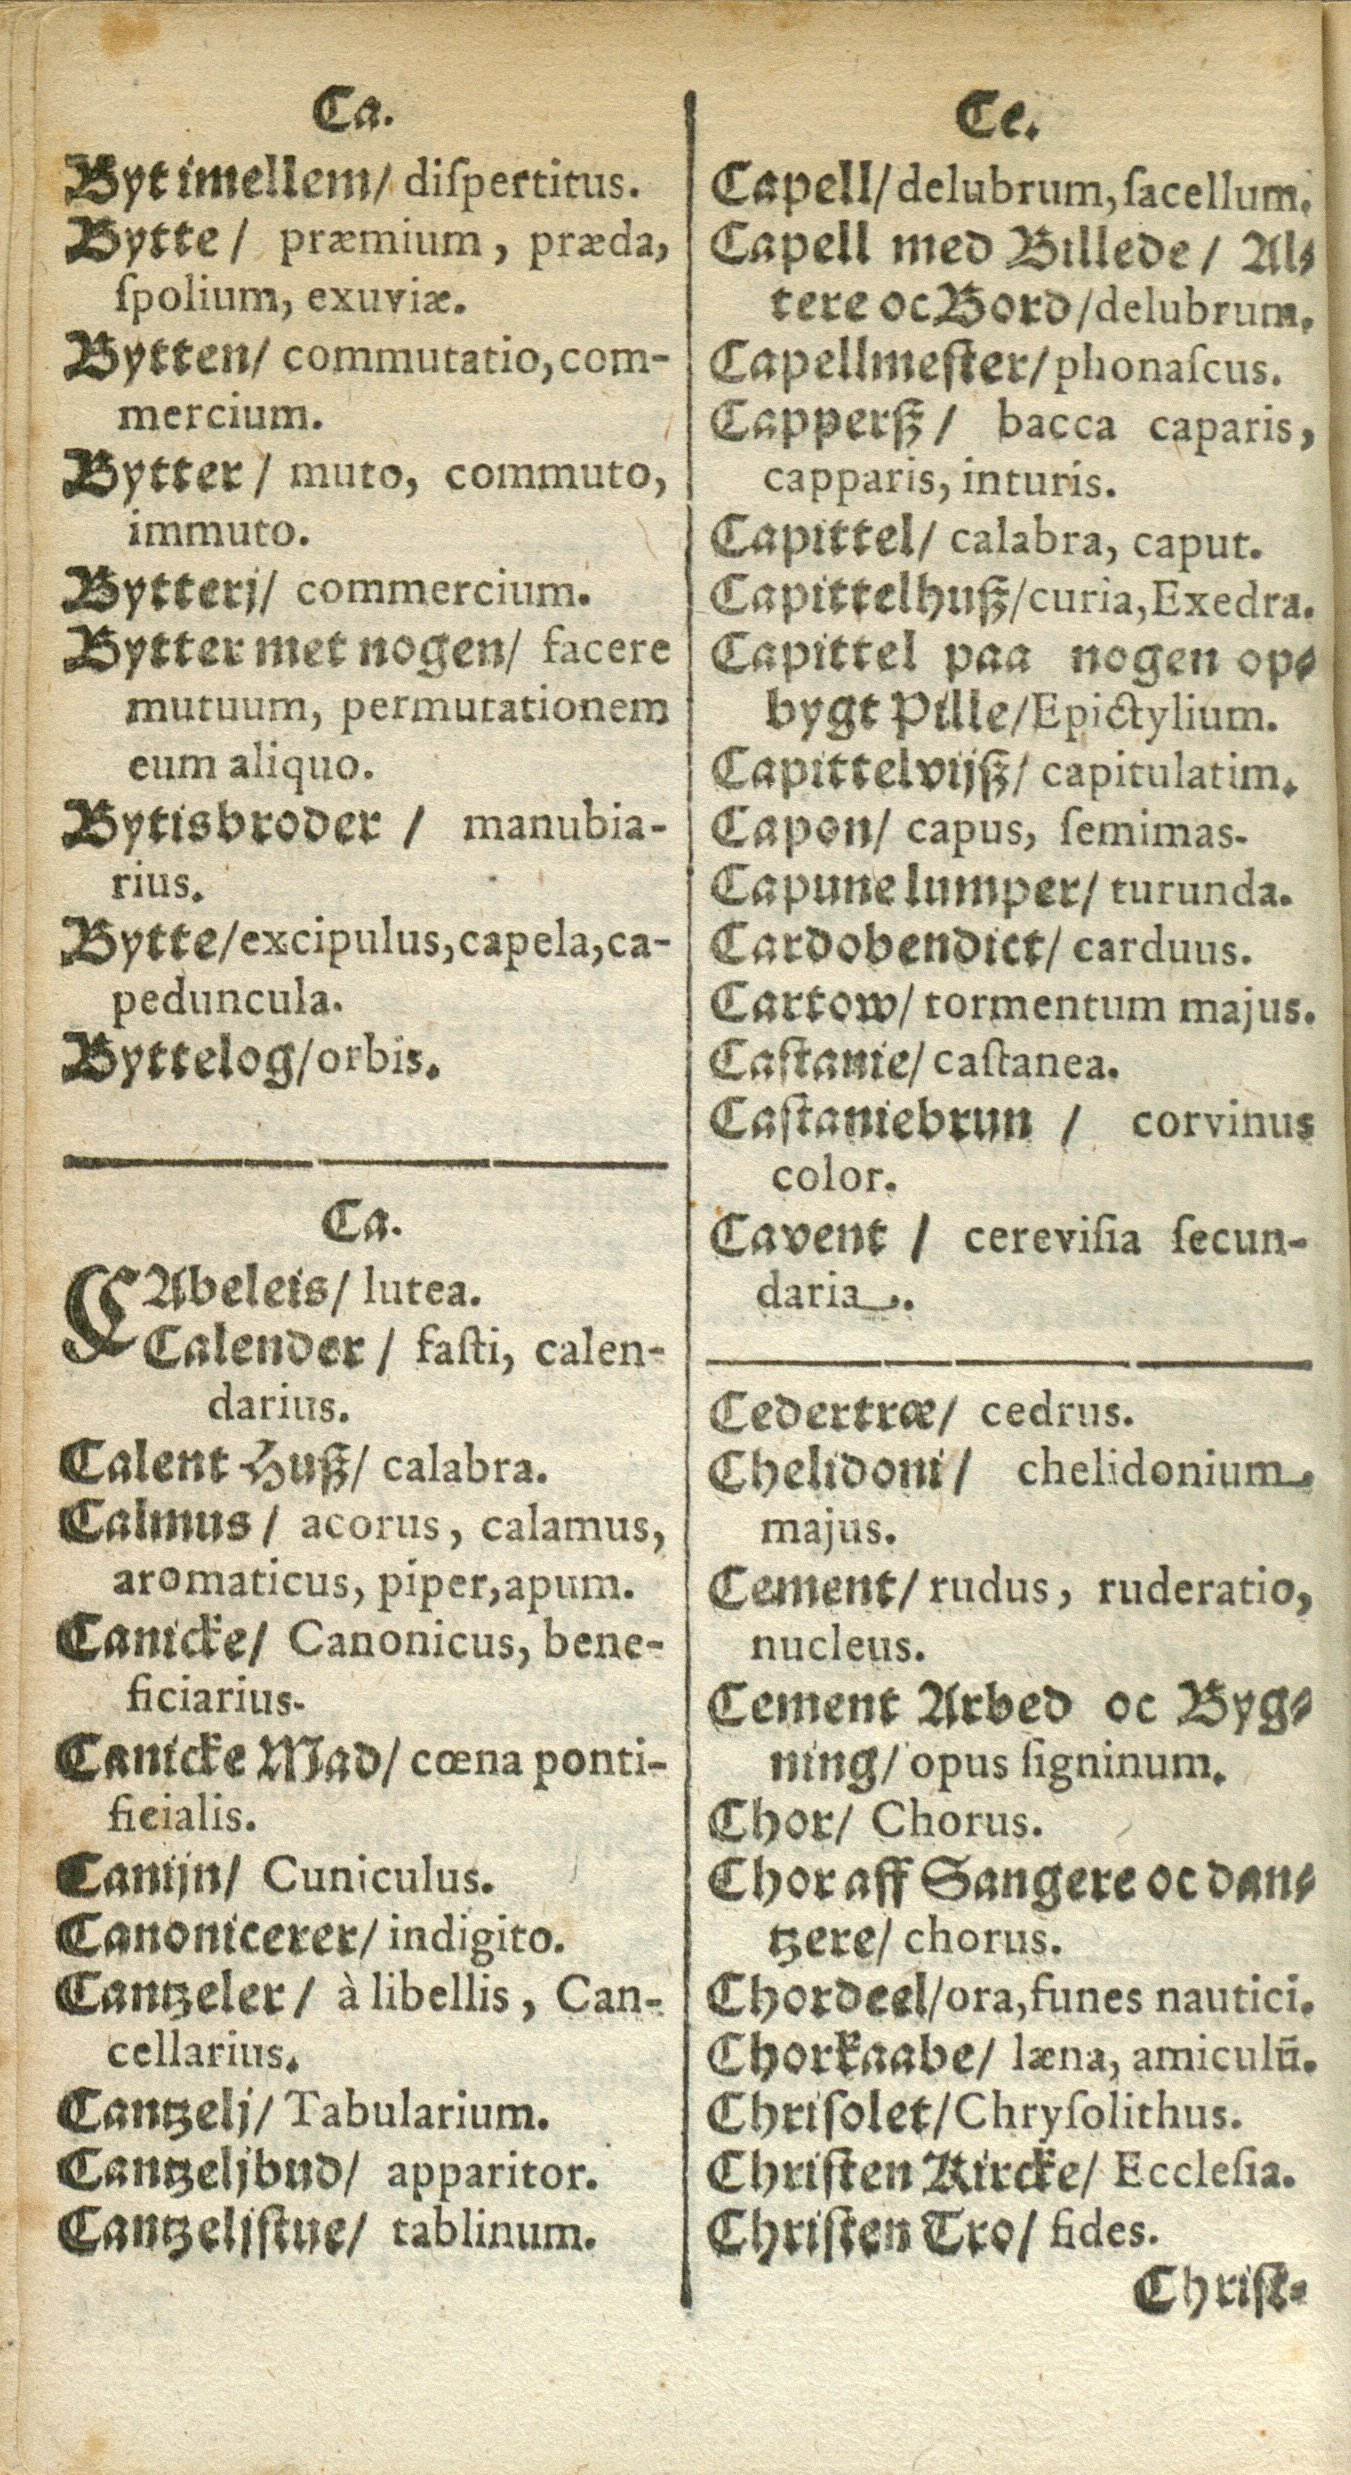 Ca.
Byt imellem/ diſpertitus.
Bytte / præmium, præda,
ſpolium, exuviæ.
Bytten/ commutatio, com-
mercium.
Bytter / muto, commuto,
immuto.
Bytterj/ commercium.
Bytter met nogen/ facere
mutuum, permutationem
eum aliquo.
Bytisbroder / manubia-
rius.
Bytte/excipulus, capela, ca-
peduncula.
Byttelog/orbis.
Ca.
CAbeleis/ lutea.
Calender / faſti, calen-
darius.
Calent Huß/ calabra.
Calmus / acorus, calamus,
aromaticus, piper, apum.
Canicke/ Canonicus, bene-
ficiarius.
Canicke Mad/ cœna ponti-
ficialis.
Canijn/ Cuniculus.
Canonicerer/ indigito.
Cantzeler / à libellis, Can-
cellarius.
Cantzelj/ Tabularium.
Cantzeljbud/ apparitor.
Cantzeljſtue/ tablinum.
Ce.
Capell/ delubrum, ſacellum.
Capell med Billede / Al-
tere oc Bord/delubrum.
Capellmeſter/ phonaſcus.
Capperß / bacca caparis,
capparis, inturis.
Capittel/ calabra, caput.
Capittelhuß/curia, Exedra.
Capittel paa nogen op-
bygt Pille/Epictylium.
Capittelvijß/ capitulatim.
Capon/ capus, ſemimas.
Capune lumper/ turunda.
Cardobendict/ carduus.
Cartow/ tormentum majus.
Caſtanie/ caſtanea.
Caſtaniebrun / corvinus
color.
Cavent / cereviſia ſecun-
daria.
Cedertræ/ cedrus.
Chelidoni / chelidonium
majus.
Cement/ rudus, ruderatio,
nucleus.
Cement Arbed oc Byg-
ning/ opus ſigninum.
Chor/ Chorus.
Chor aff Sangere oc dan-
tzere/ chorus.
Chordeel/ora, funes nautici.
Chorkaabe/ læna, amiculū.
Chriſolet/Chryſolithus.
Chriſten Kircke/ Eccleſia.
Chriſten Tro/ fides.
Chriſt-